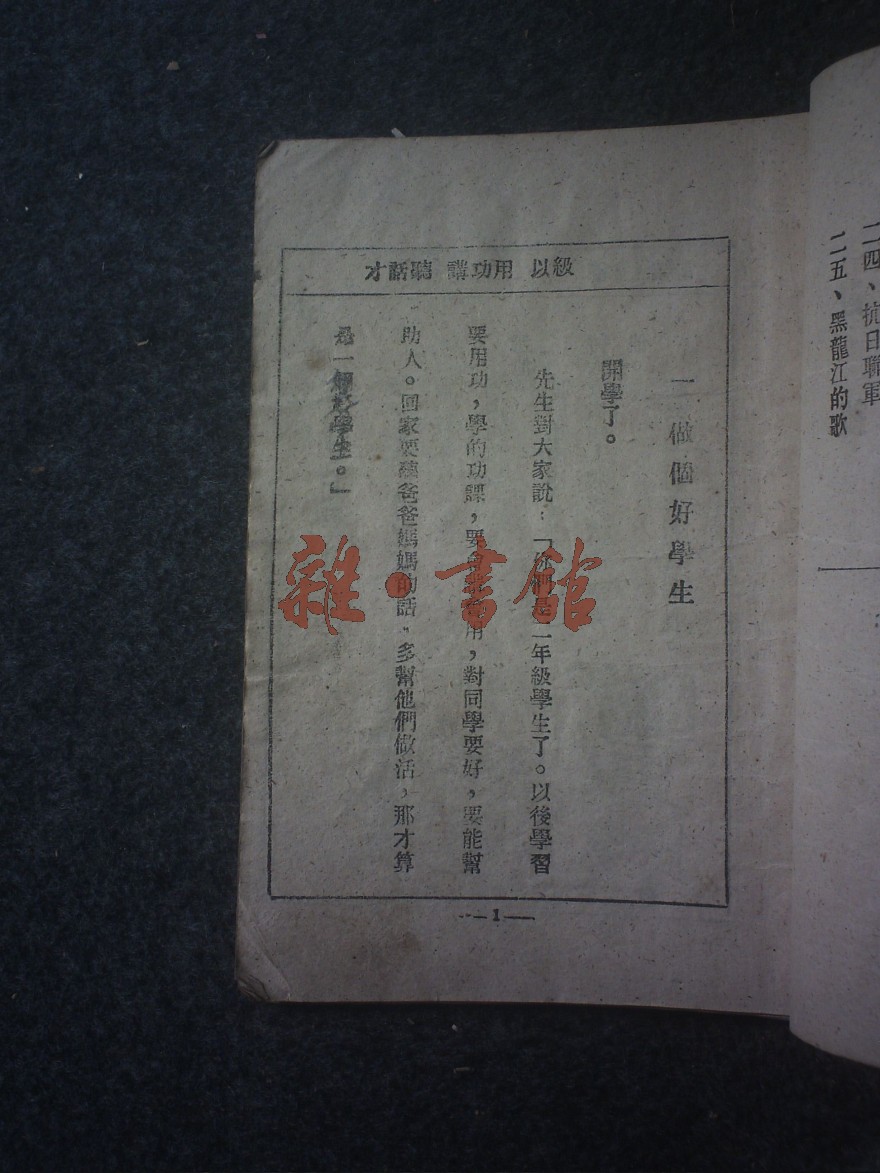 二四、抗日聯軍
二五、黑龍江的歌
級以 用功 聽話才
一 做個好學生
開學了。
先生對大家說：「你們是二年級學生了。以後學習
要用功，學的功課，要會用，對同學要好，要能幫
助人。回家要聽爸爸媽媽的話，多幫他們做活，那才算
是一個好學生。」
—1—
雜·書館